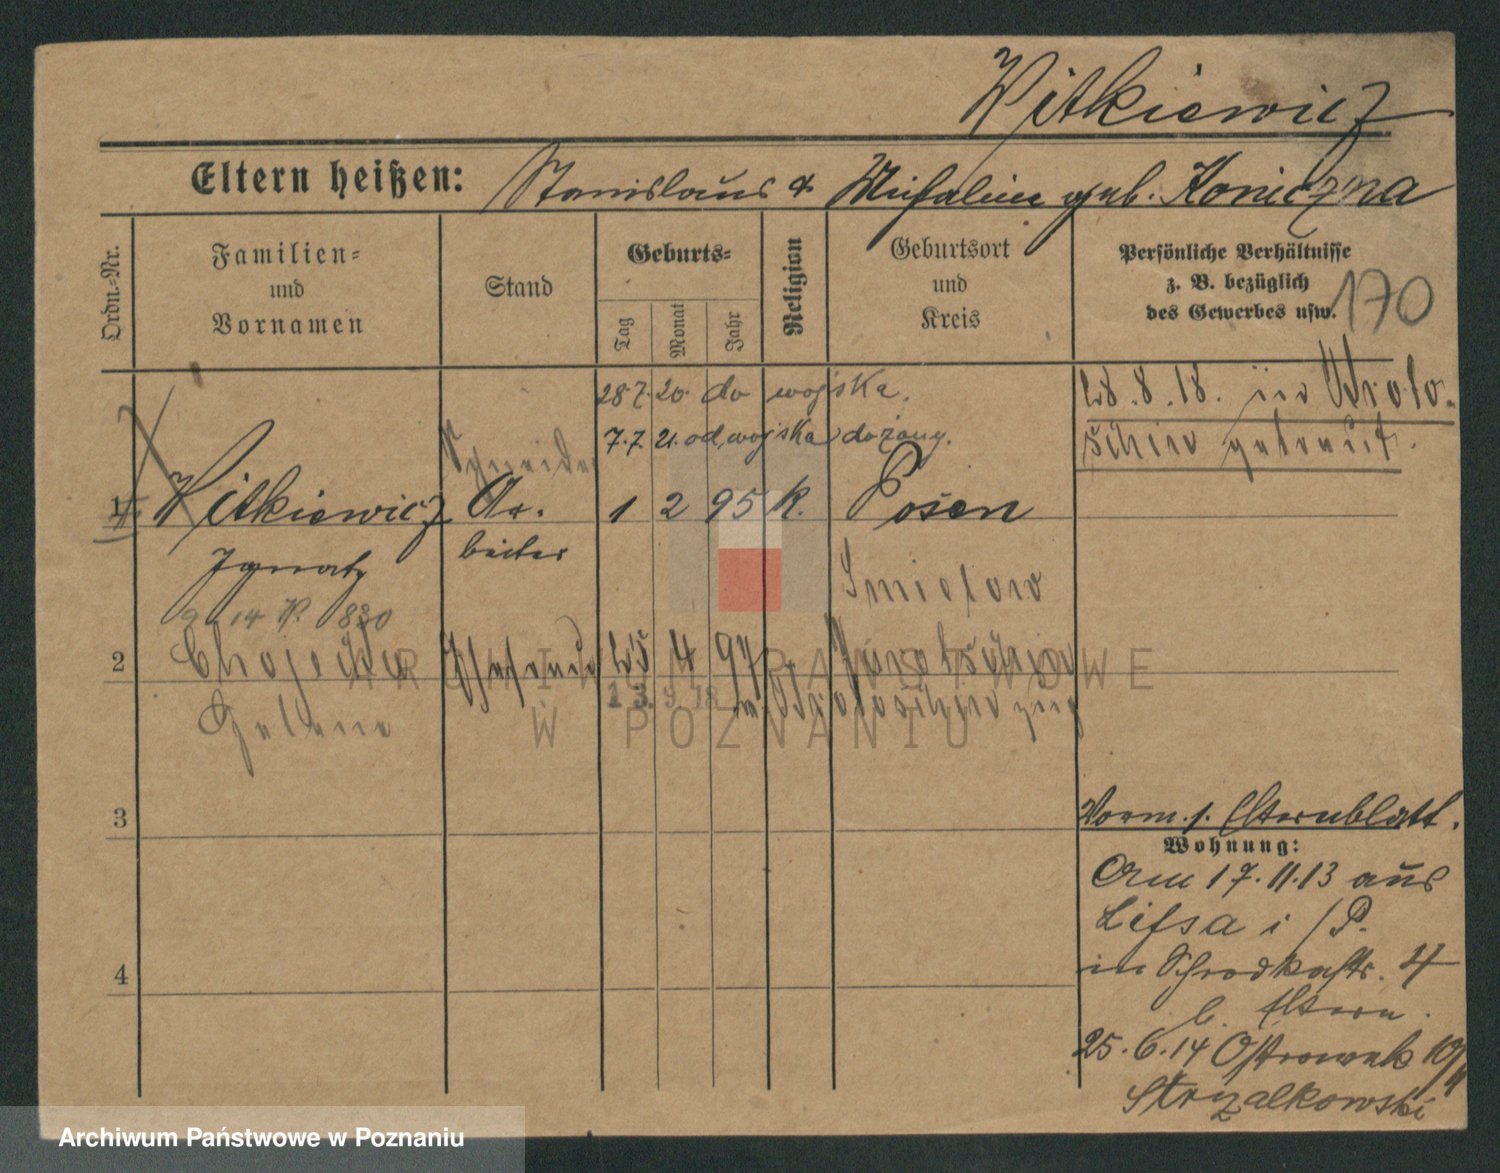 Witkiewicz
Eltern heißen: Stanislaus & Michaline geb. Koniczna
Ordn.-Nr.
Familien-
und
Vornamen
Stand
Geburts-
Tag
Monat
Jahr
Religion
Geburtsort
und
Kreis
Persönliche Verhältnisse
z. B. bezüglich
des Gewerbes usw.
170
28.7.20. do wojska.
7.7.21. od wojska
28.8.18. in Kroto-
schin getraut.
1
Witkiewicz
Ignatz
Schneider
Ar-
beiter
1 2 95 K. Posen
14 K. 830
2
Chojecka
Helene
Ehefrau
25 4 97
Smielow
Jarotschin
13.9.18 v. Krotoschin zug
3
4
Vorm. s. Elternblatt.
Wohnung:
Am 17.11.13 aus
Lissa i/P.
in Schrodkastr. 4
b. Eltern.
25.6.14 Ostrowek 10/11
Strzalkowski
ARCHIWUM PAŃSTWOWE
W POZNANIU
Archiwum Państwowe w Poznaniu